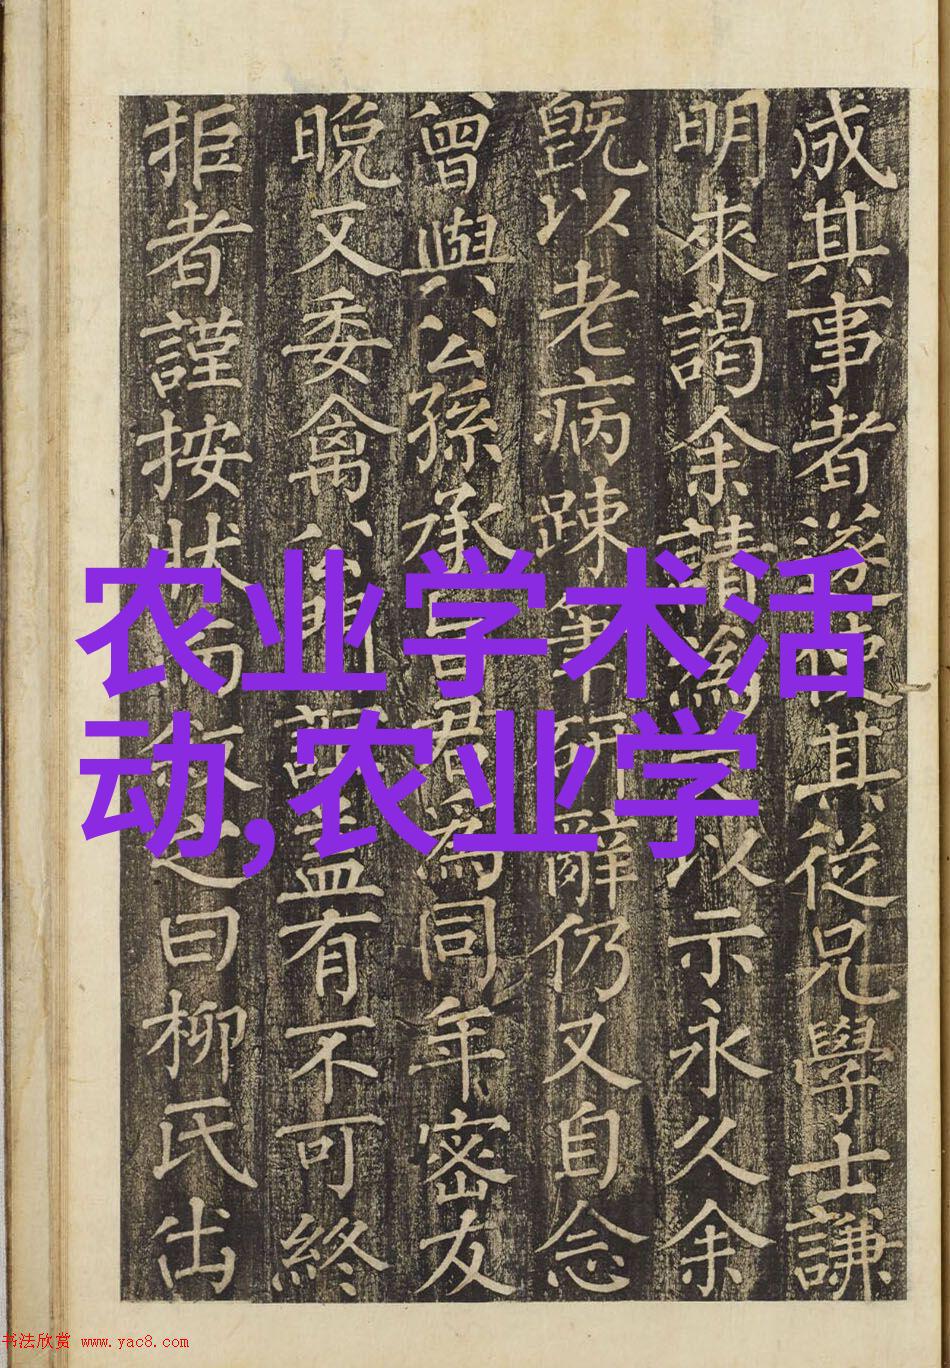 成其事者遂使其從兄學士謙
明來謁余請為文以示永久余
旣以老病踈筆硏辭仍又自念
曾與公孫承旨君為同年密友
晚又委禽公門誼盖有不可終
拒者謹按狀而敘之曰柳氏出
农业学术活
动,农业学
书法欣赏 www.yac8.com